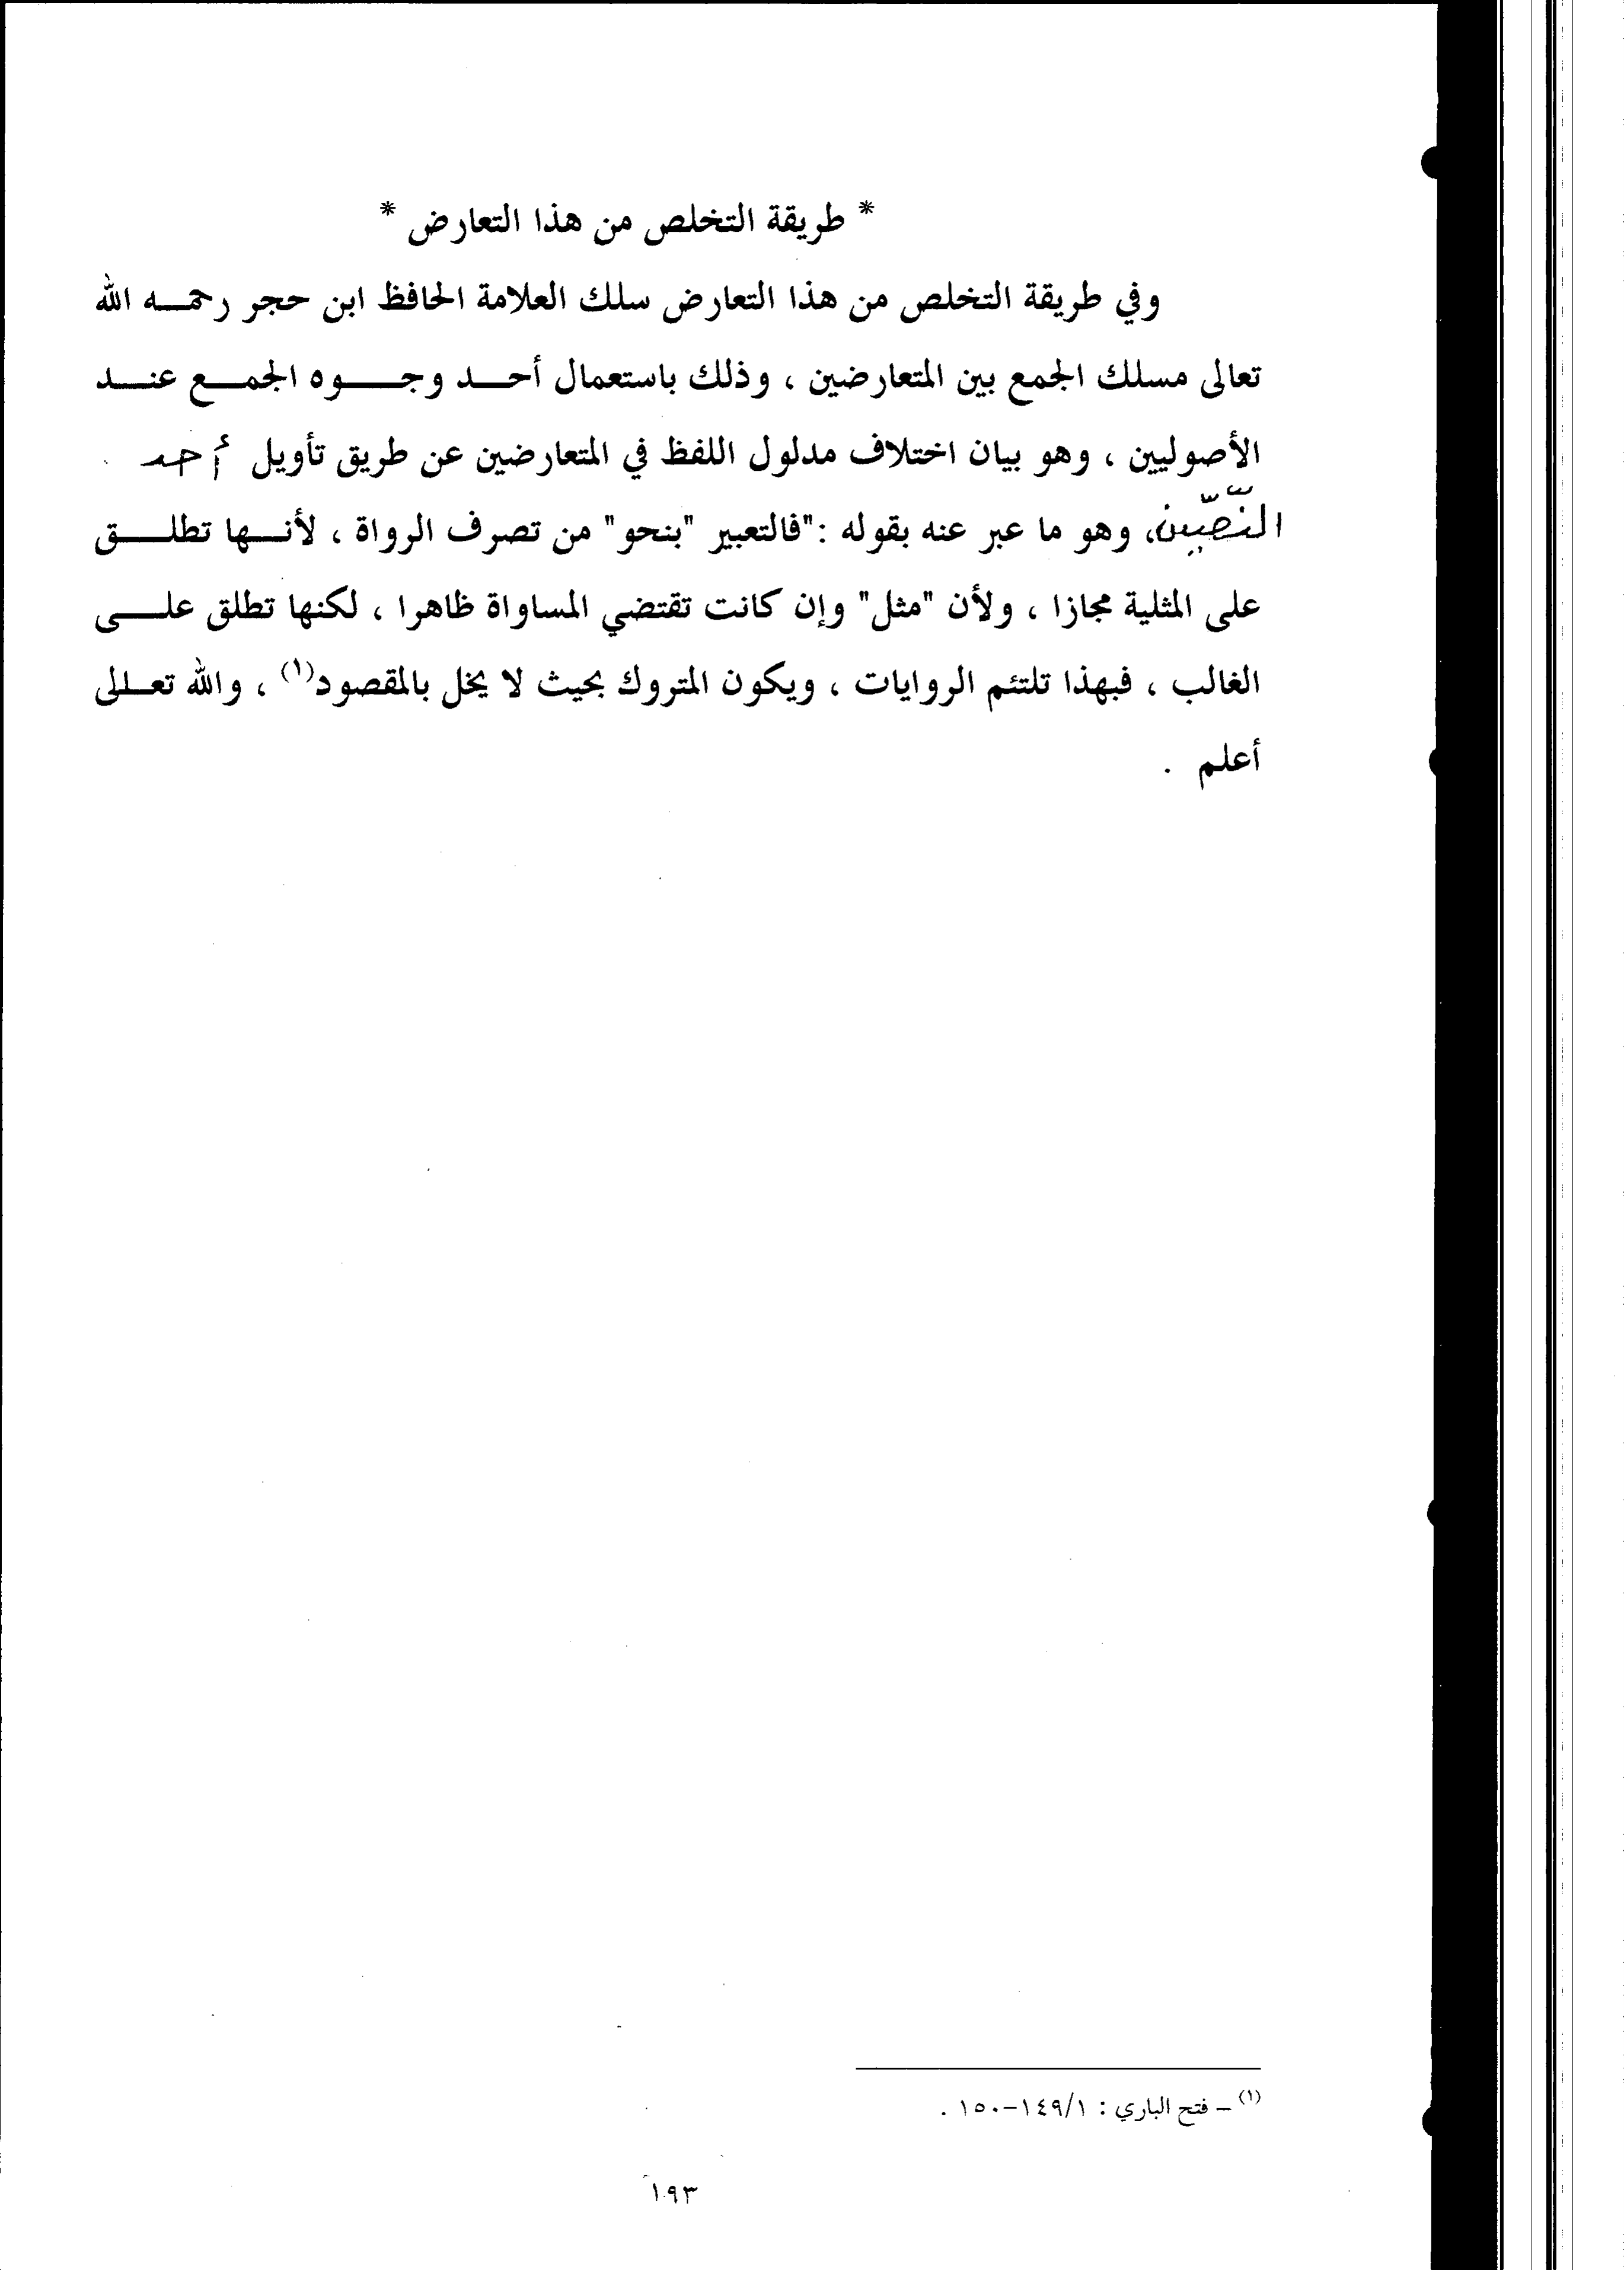 * طريقة التخلص من هذا التعارض *
وفي طريقة التخلص من هذا التعارض سلك العلامة الحافظ ابن حجر رحمه الله
تعالى مسلك الجمع بين المتعارضين ، وذلك باستعمال أحد وجوه الجمع عند
الأصوليين ، وهو بيان اختلاف مدلول اللفظ في المتعارضين عن طريق تأويل أحد
النصّين، وهو ما عبر عنه بقوله :"فالتعبير "بنحو" من تصرف الرواة ، لأنها تطلق
على المثلية مجازا ، ولأن "مثل" وإن كانت تقتضي المساواة ظاهرا ، لكنها تطلق على
الغالب ، فبهذا تلتئم الروايات ، ويكون المتروك بحيث لا يخل بالمقصود(١) ، والله تعالى
أعلم .
(١) – فتح الباري : ١٤٩/١-١٥٠ .
١٩٣